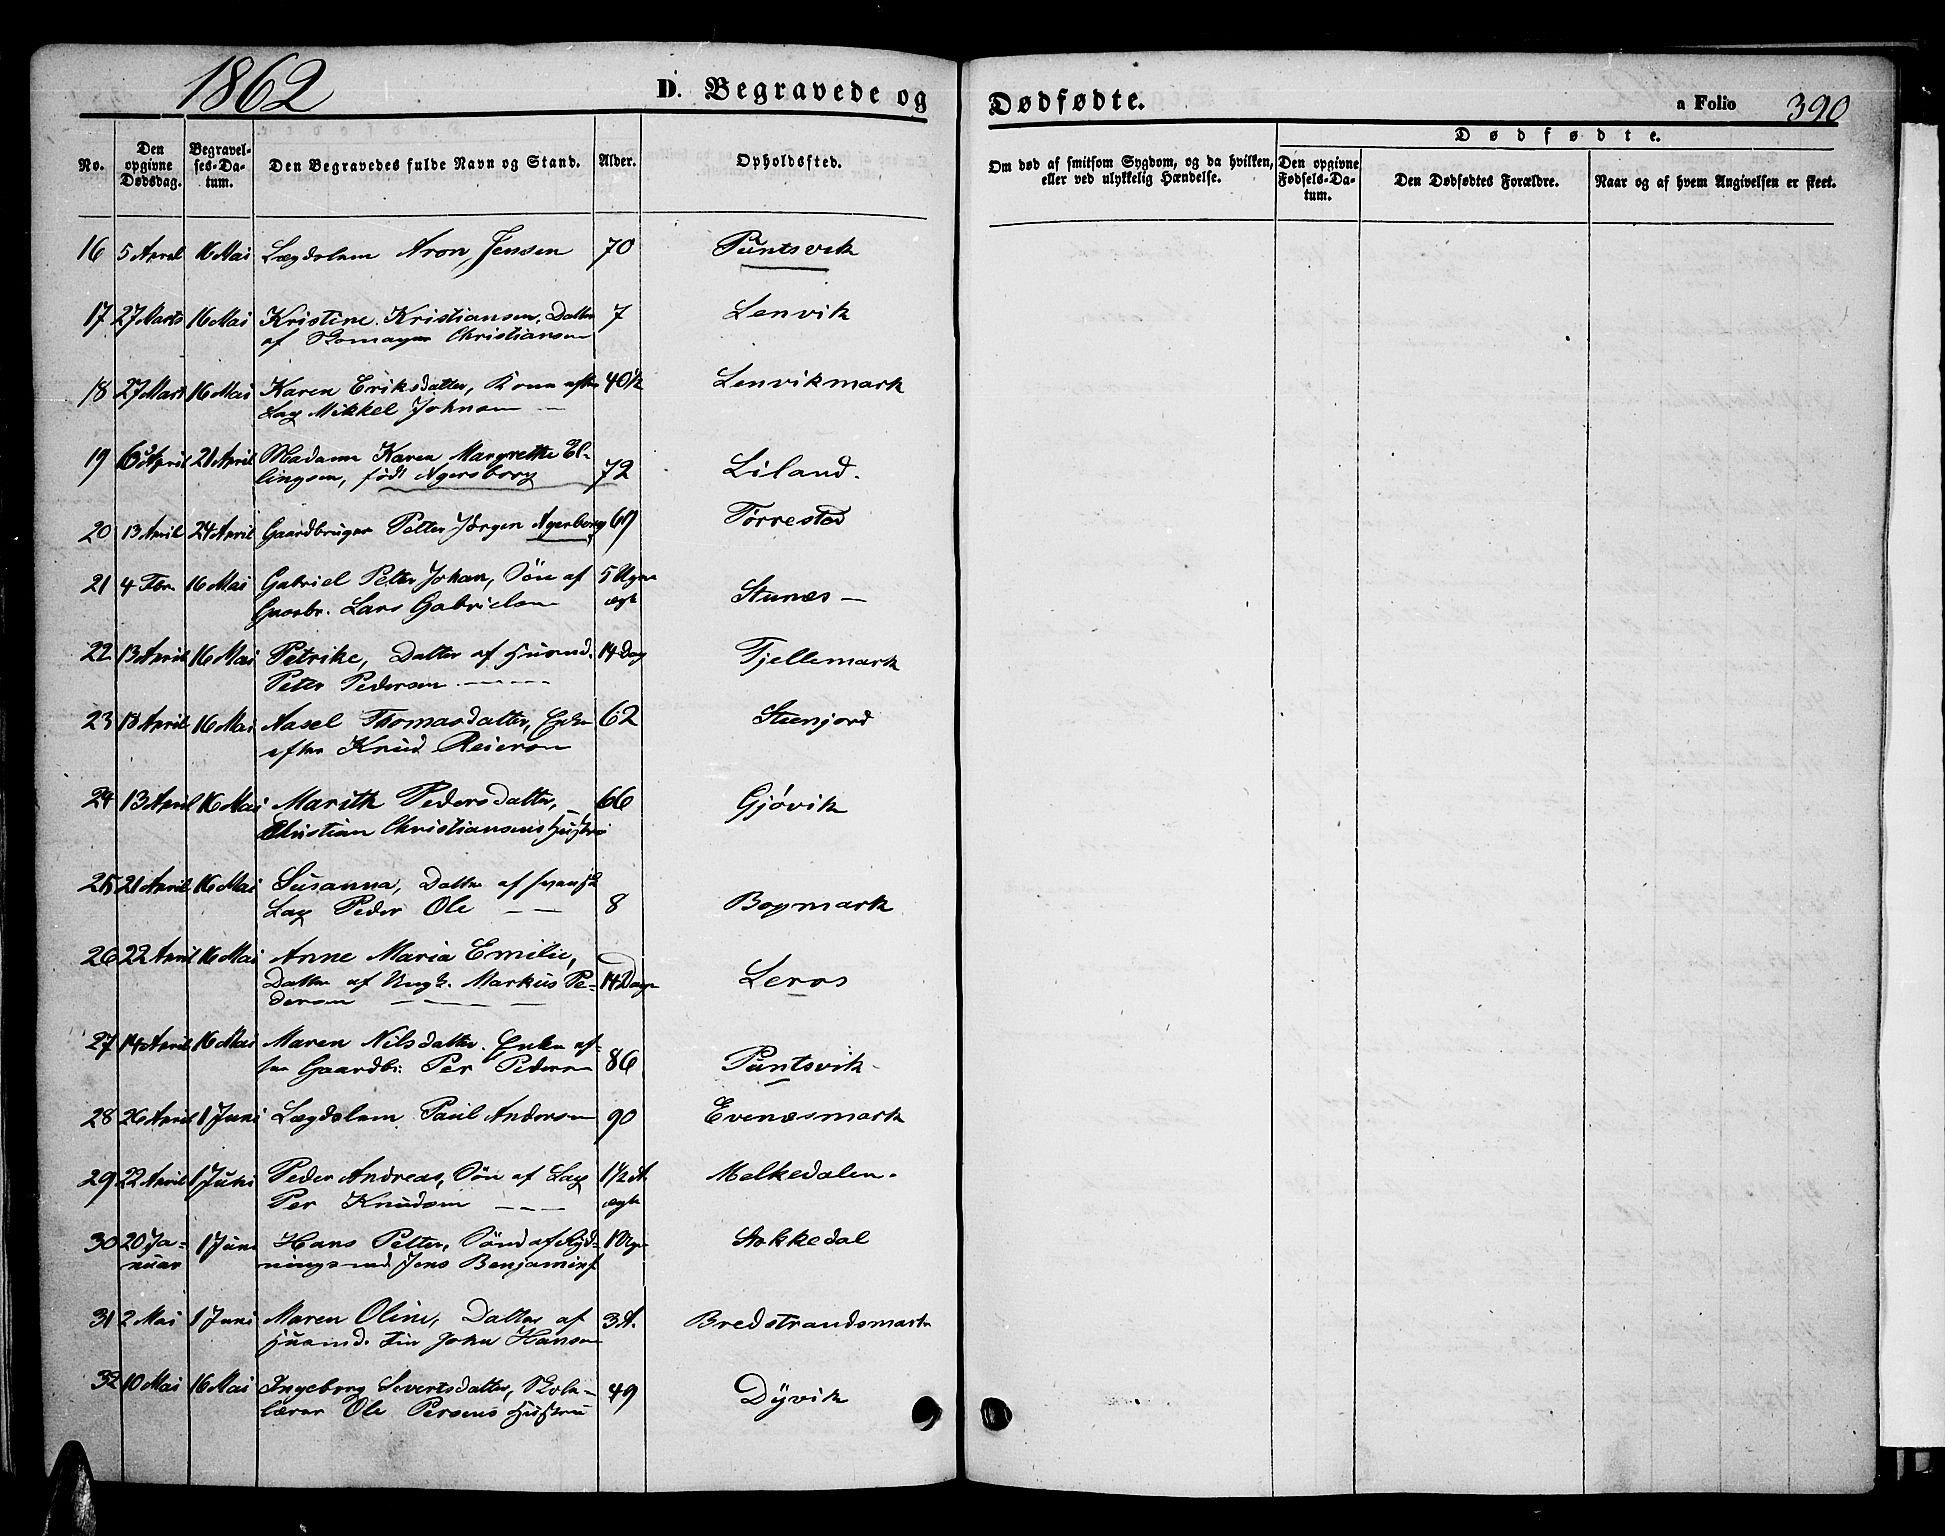 1862
D. Begravede og Dødfødte.
a Folio 390
No.
Den opgivne Dødsdag.
Begravelses-Datum.
Den Begravedes fulde Navn og Stand.
Alder.
Opholdssted.
Om død af smitsom Sygdom, og da hvilken, eller ved ulykkelig Hændelse.
Dødfødte.
Den opgivne Fødsels-Datum.
Den Dødfødtes Forældre.
Naar og af hvem Angivelsen er skeet.
16 5 April 16 Mai Lægdslem Aron Jensen 70 Puntsvik
17 27 Marts 16 Mai Kristine Kristiansen, Datter 7 Lenvik
af Christiansen
18 27 Marts 16 Mai Karen Eriksdatter, Kone efter 40 Lenvikmark
Lap Mikkel Johnsen
19 6 April 21 April Madame Karen Margrethe El-
lingsen, født Agersborg 72 Liland.
20 13 April 24 April Gaardbruger Petter Jørgen Agerborg 69 Tørrestad
21 4 Fbr 16 Mai Gabriel Peter Johan, Søn af 5 Uger
Gaardbr. Lars Gabrielsen ægte Stunes
22 13 April 16 Mai Petrike, Datter af Husmd. 14 Dag Tjellemark
Peter Pedersen
23 18 April 16 Mai Aasel Thomasdatter, Enke 62 Steenjord
efter Knud Reiersen
24 13 April 16 Mai Marith Pedersdatter, 66 Gjøvik
Christian Christiansens Hustru
25 21 April 16 Mai Susanna, Datter af svensk
Lap Peder Ole 8 Bogmark
26 22 April 16 Mai Anne Maria Emilie,
Datter af Ungk. Markus Pe- 14 Dage Leros
dersen
27 14 April 16 Mai Maren Nilsdatter. Enke ef-
ter Gaardbr: Per Pedersen 86 Puntsvik
28 26 April 1 Juni Lægdslem Paul Andersen 90 Evenæsmark
29 22 April 1 Juni Peder Andreas, Søn af Lap 1½ A. Melkedalen.
Per Knudsen ægte
30 20 Ja- 1 Juni Hans Petter, Søn af Ryd- 1 Uge Stokkedal
nuar ningsmd Jens Benjamins
31 2 Mai 1 Juni Maren Oline, Datter af 3 A. Bredstrandsmark
Husmd. Fin John Hansen
32 10 Mai 16 Mai Ingeborg Sivertsdatter, Skole- 49 Dÿvik
lærer Ole Persens Hustru